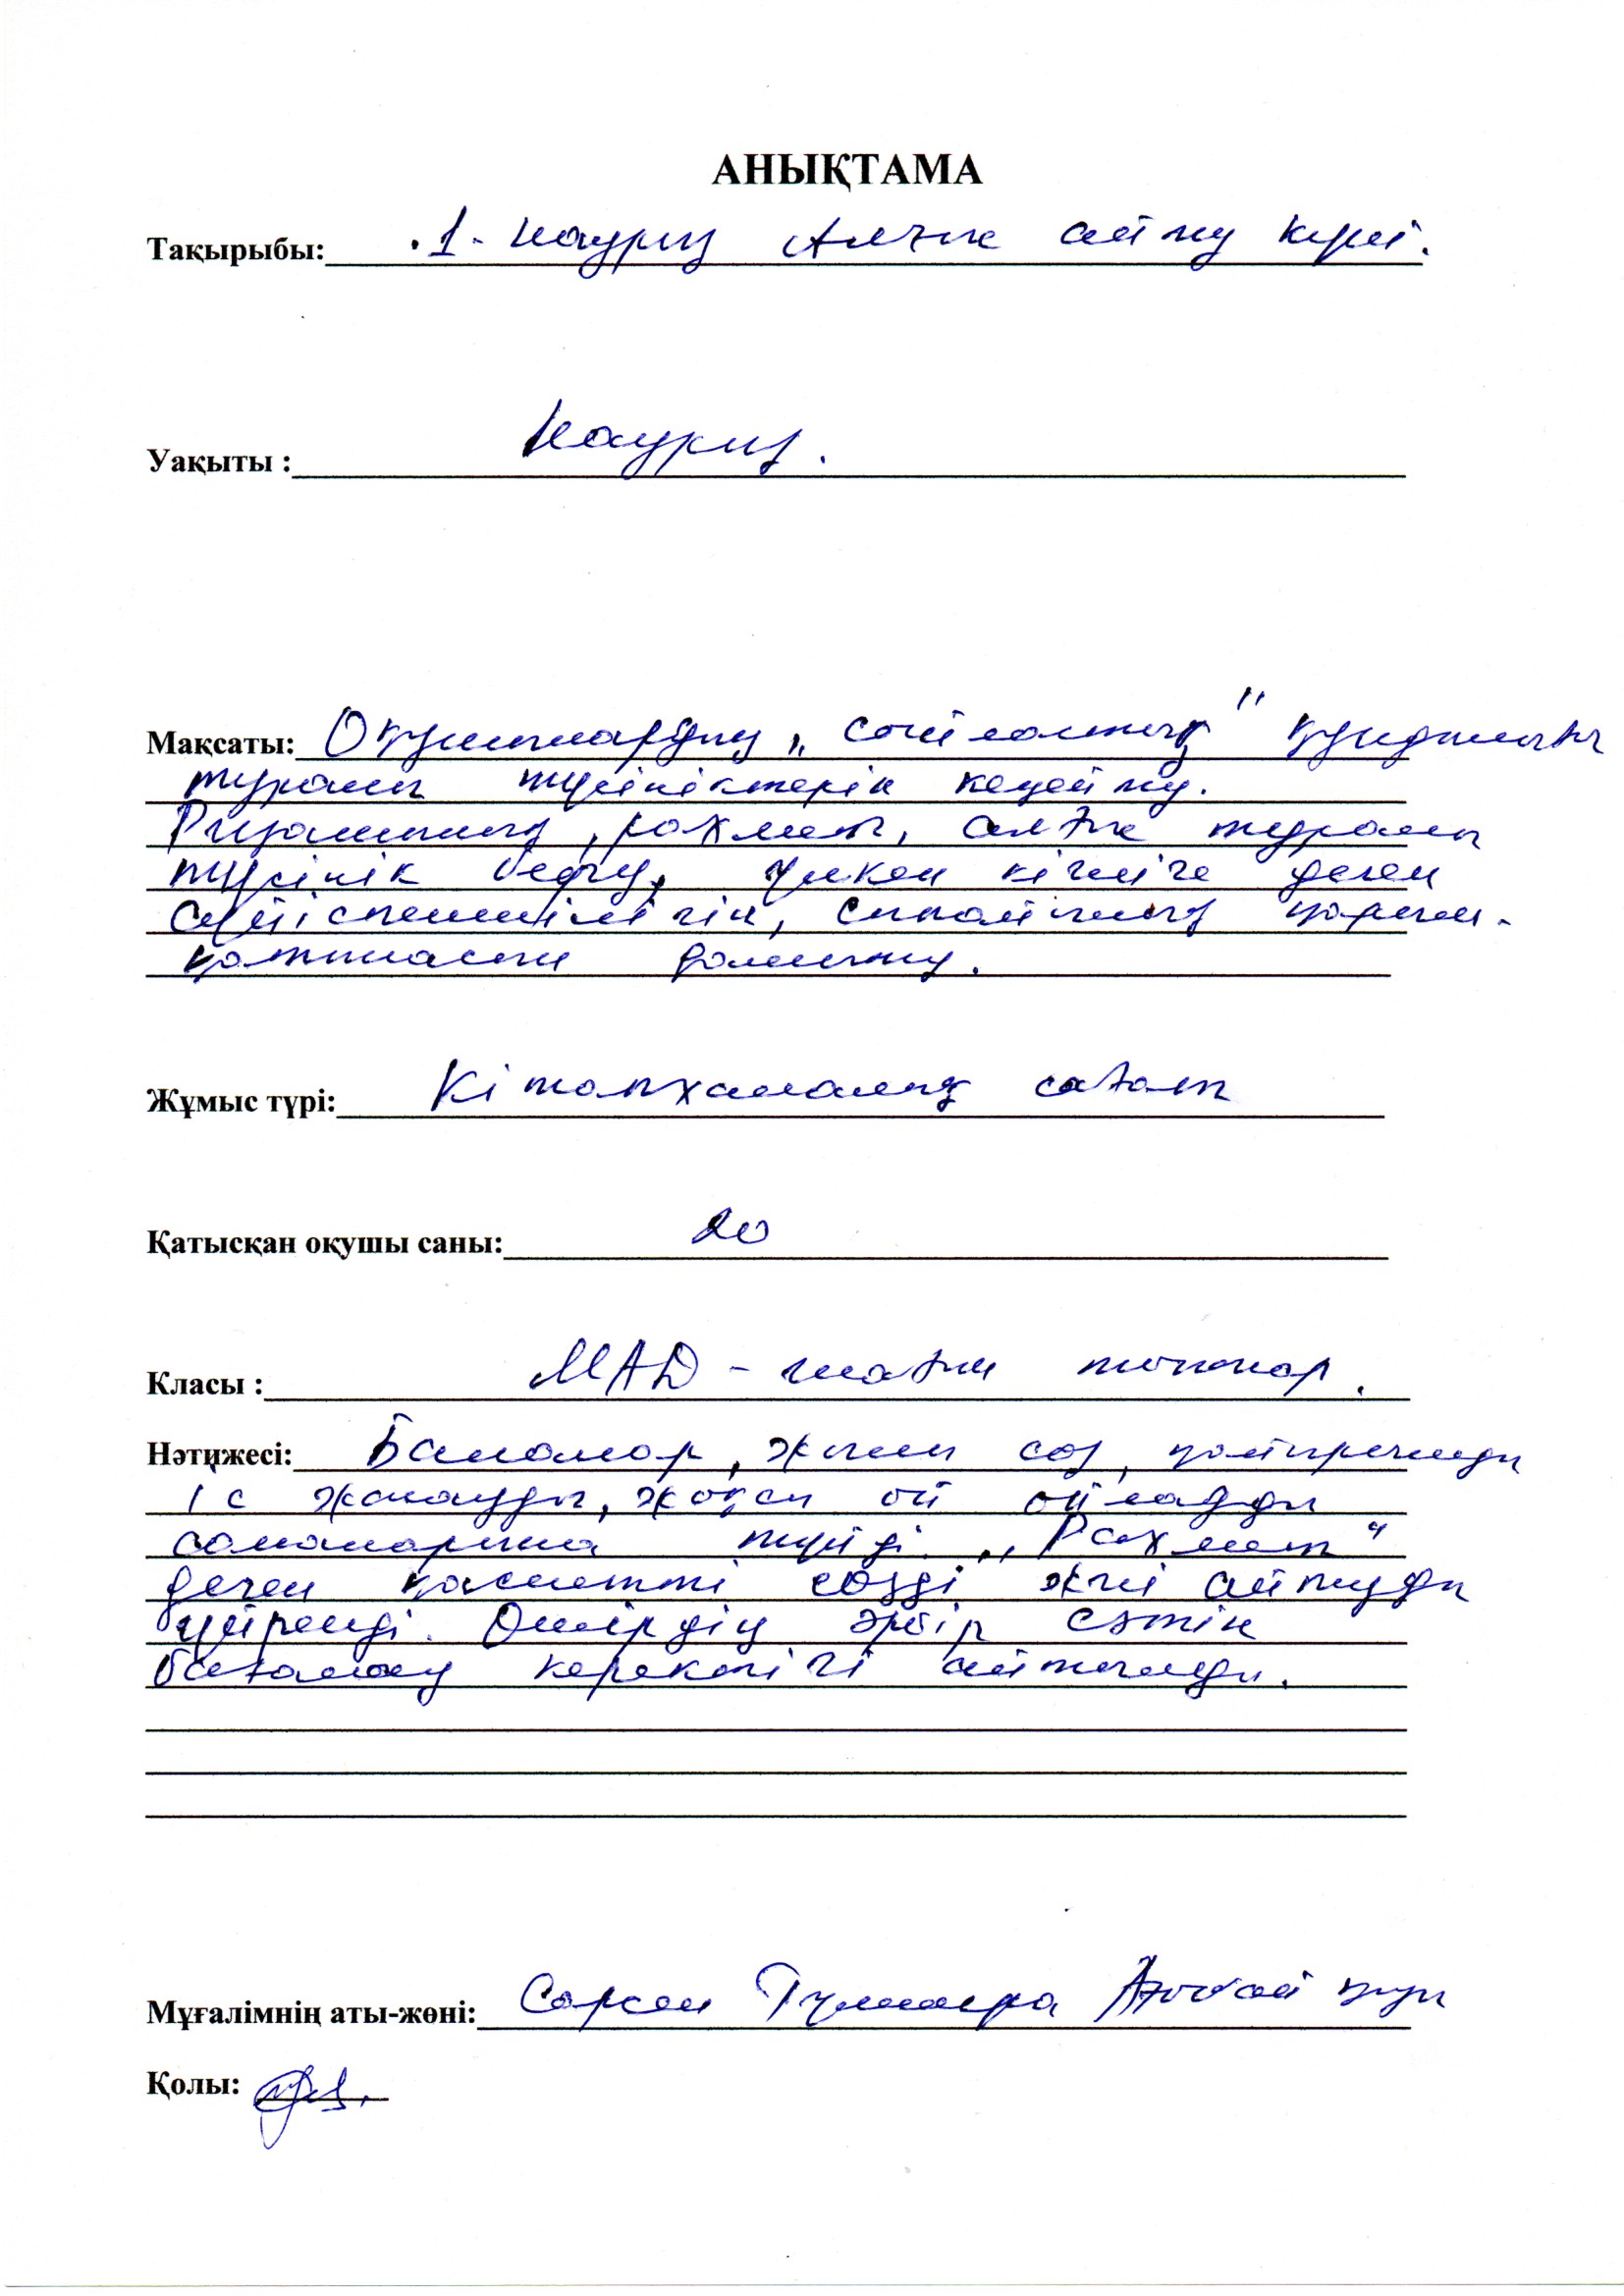 АНЫҚТАМА
Тақырыбы: 1-наурыз Алғыс айту күні.
Уақыты : Наурыз.
Мақсаты: Оқушылардың "сыйластық" құндылығы
туралы түсініктерін кеңейту.
Ризашылық, рахмет, алғыс туралы
түсінік беру, үлкен кішіге деген
сүйіспеншілігін, сыпайылық қарым-
қатынасын дамыту.
Жұмыс түрі: Кітапханалық сағат
Қатысқан оқушы саны: 20
Класы : МАД - шағын топтар.
Нәтижесі: Балалар, жылы сөз, қайырымды
іс жасауды, жақсы ой ойлауды
саналарына түйді. "Рахмет"
деген қасиетті сөзді жиі айтуды
үйренді. Өмірдің әрбір сәтін
бағалау керектігі айтылды.
Мұғалімнің аты-жөні: Сәрсен Гүлнара қызы
Қолы: